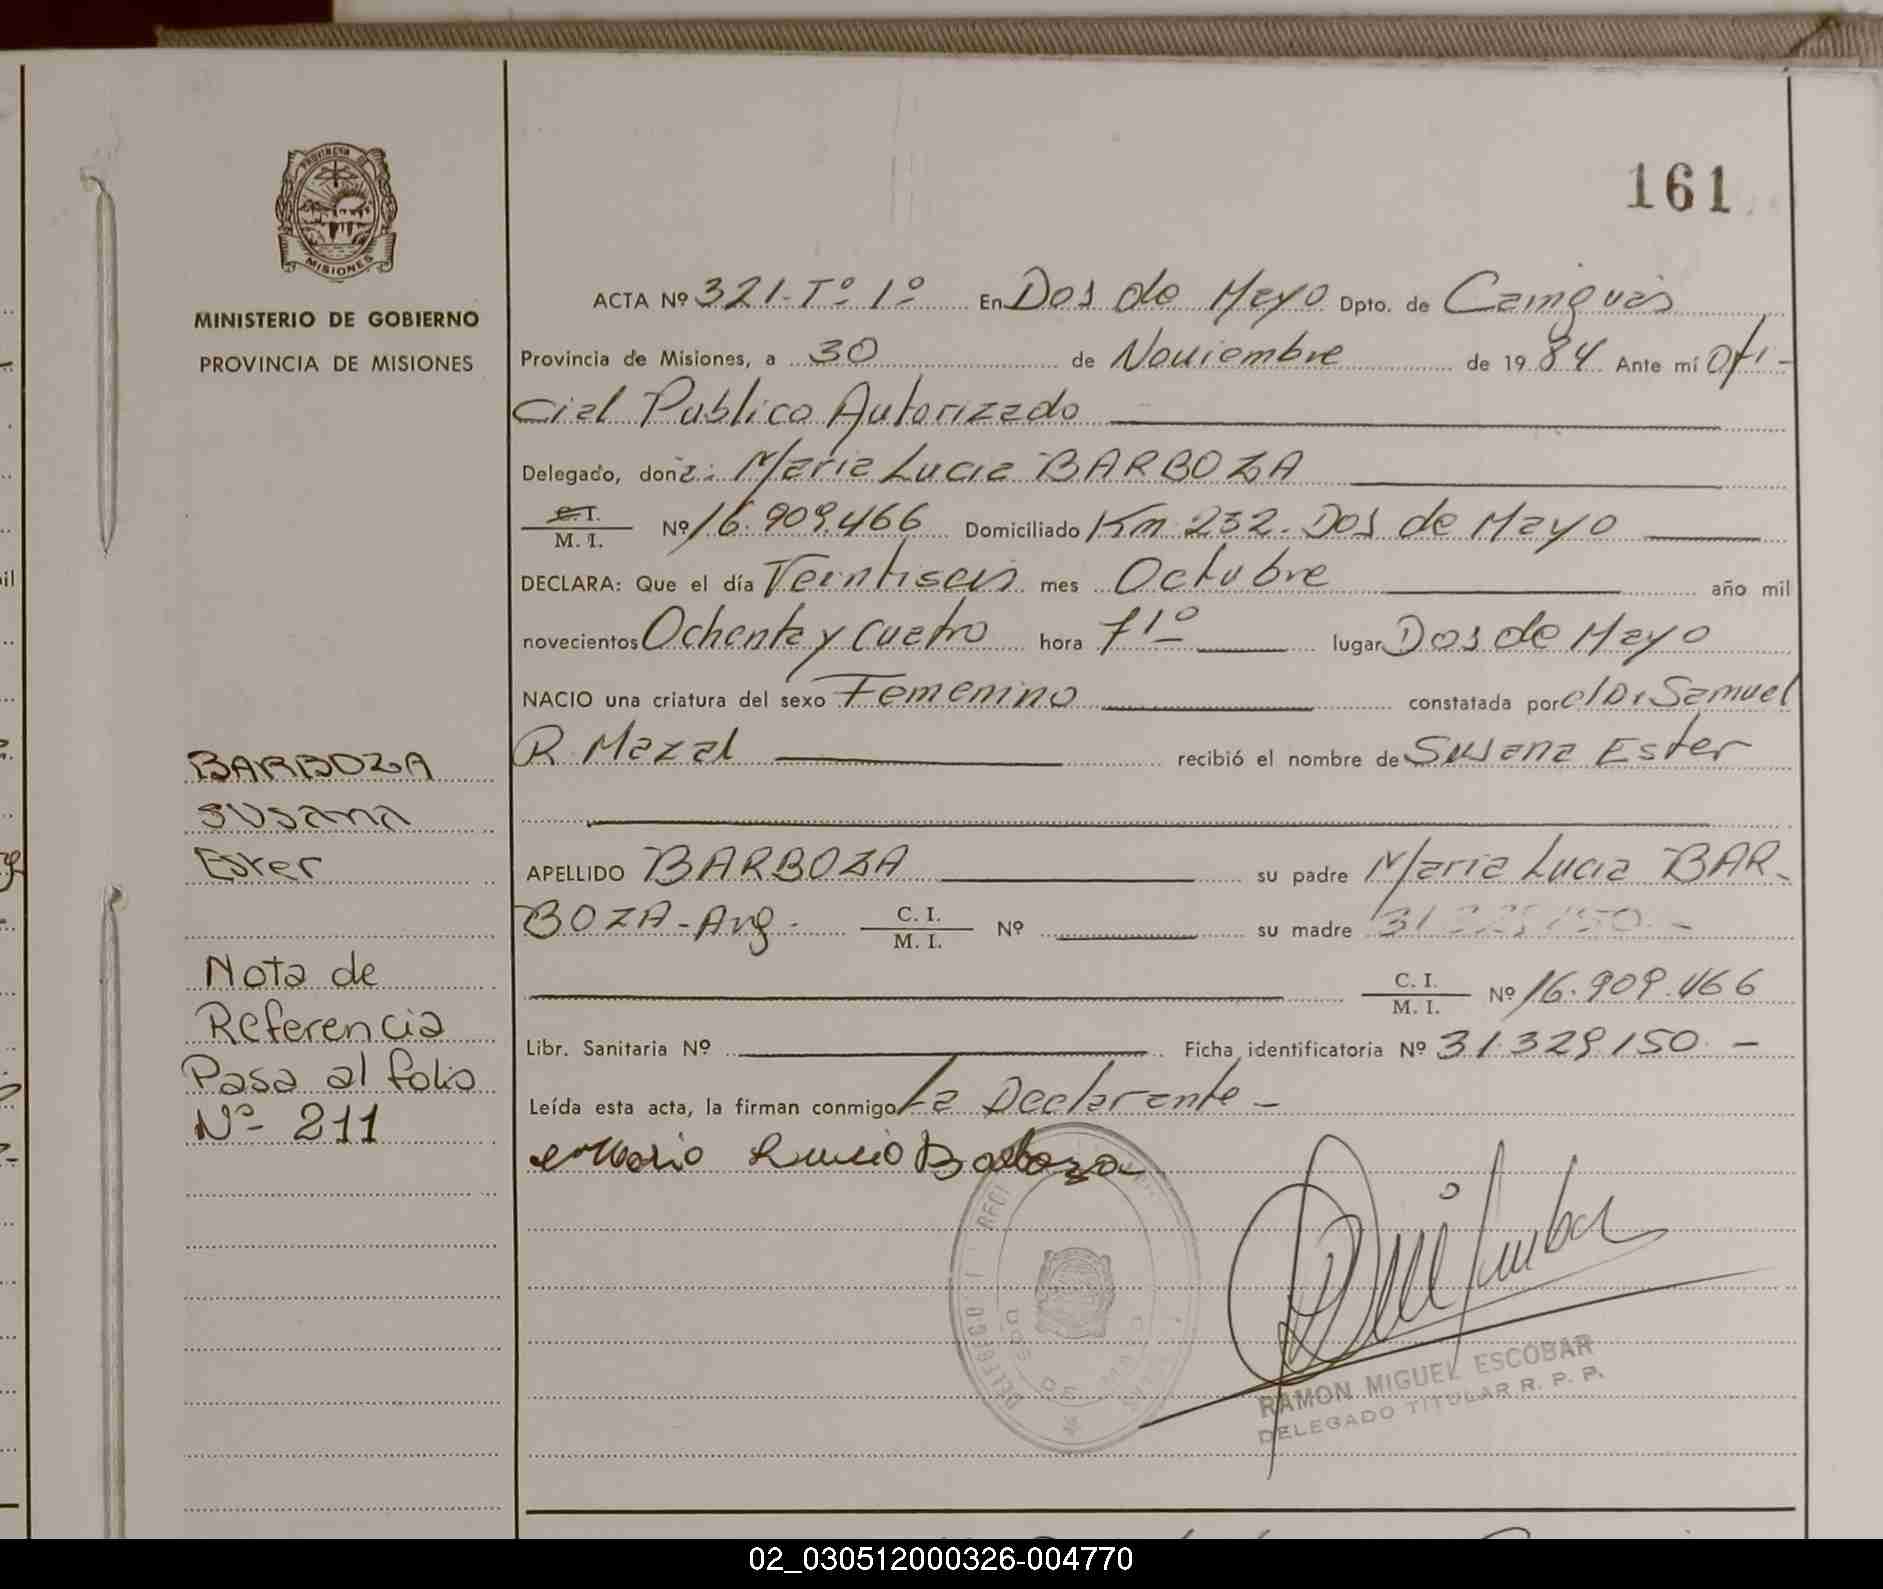 161
PROVINCIA DE
MISIONES
MINISTERIO DE GOBIERNO
PROVINCIA DE MISIONES
ACTA Nº 321-Tº 1º En Dos de Mayo Dpto. de Cainguás
Provincia de Misiones, a 30 de Noviembre de 1984 Ante mí Ofi-
cial Publico Autorizado
Delegado, doña: Maria Lucia BARBOZA
C.I.
M. I. Nº 16.909.466 Domiciliado Km 232. Dos de Mayo
DECLARA: Que el día Veintiseis mes Octubre año mil
novecientos Ochenta y Cuatro hora 71º lugar Dos de Mayo
NACIO una criatura del sexo Femenino constatada por el Dr Samuel
R. Mazal recibió el nombre de Susana Ester
APELLIDO BARBOZA su padre Maria Lucia BAR-
BOZA-Arg- C. I.
M. I. Nº su madre
C. I.
M. I. Nº 16.909.466
Libr. Sanitaria Nº Ficha identificatoria Nº 31.329.150 -
Leída esta acta, la firman conmigo La Declarante -
Maria Lucia Barboza
BARBOZA
Susana
Ester
Nota de
Referencia
Pasa al folio
Nº- 211
DOS DE MAYO
RAMON MIGUEL ESCOBAR
DELEGADO TITULAR R. P. P.
02_030512000326-004770